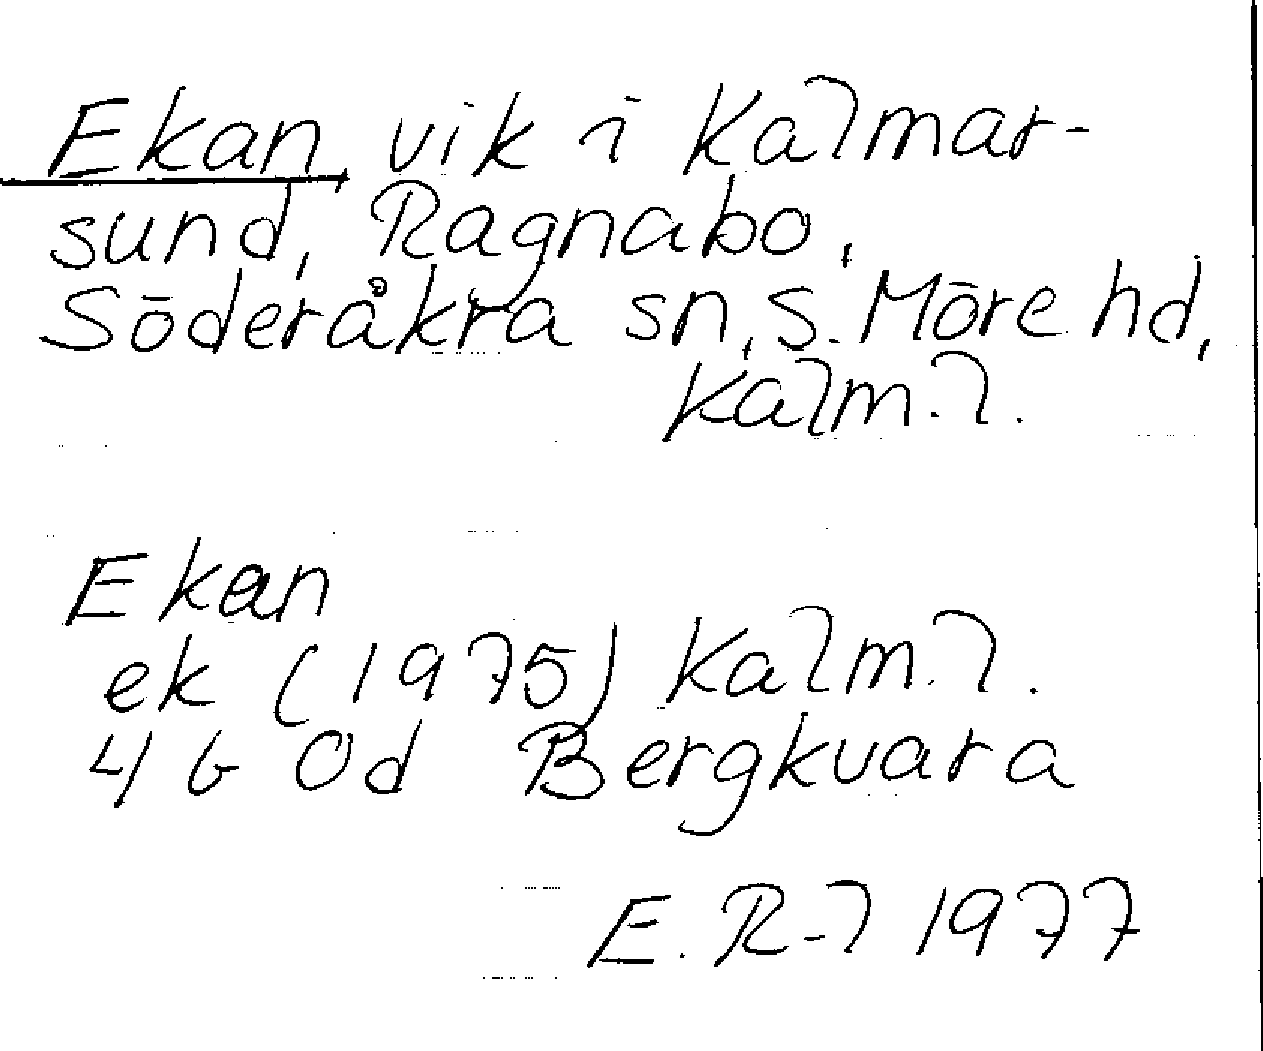 Ekan vik i Kalmar-
sund, Ragnabo,
Söderåkra sn, S. Möre hd,
Kalm. l.
Ekan
ek (1975) Kalm. l.
4 G Od Bergkvara
E. R-l 1977